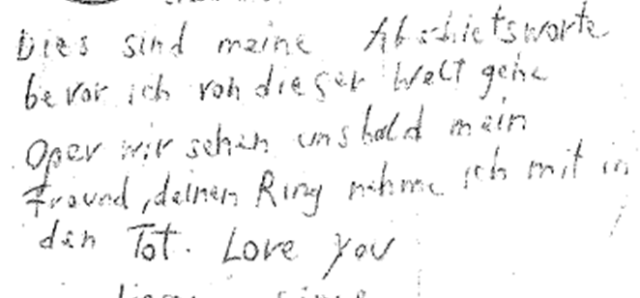 Dies sind meine Abschietsworte
bevor ich von dieser Welt gehe
Oper wir sehen uns bald mein
Freund, deinen Ring nehme ich mit in
den Tot. Love you